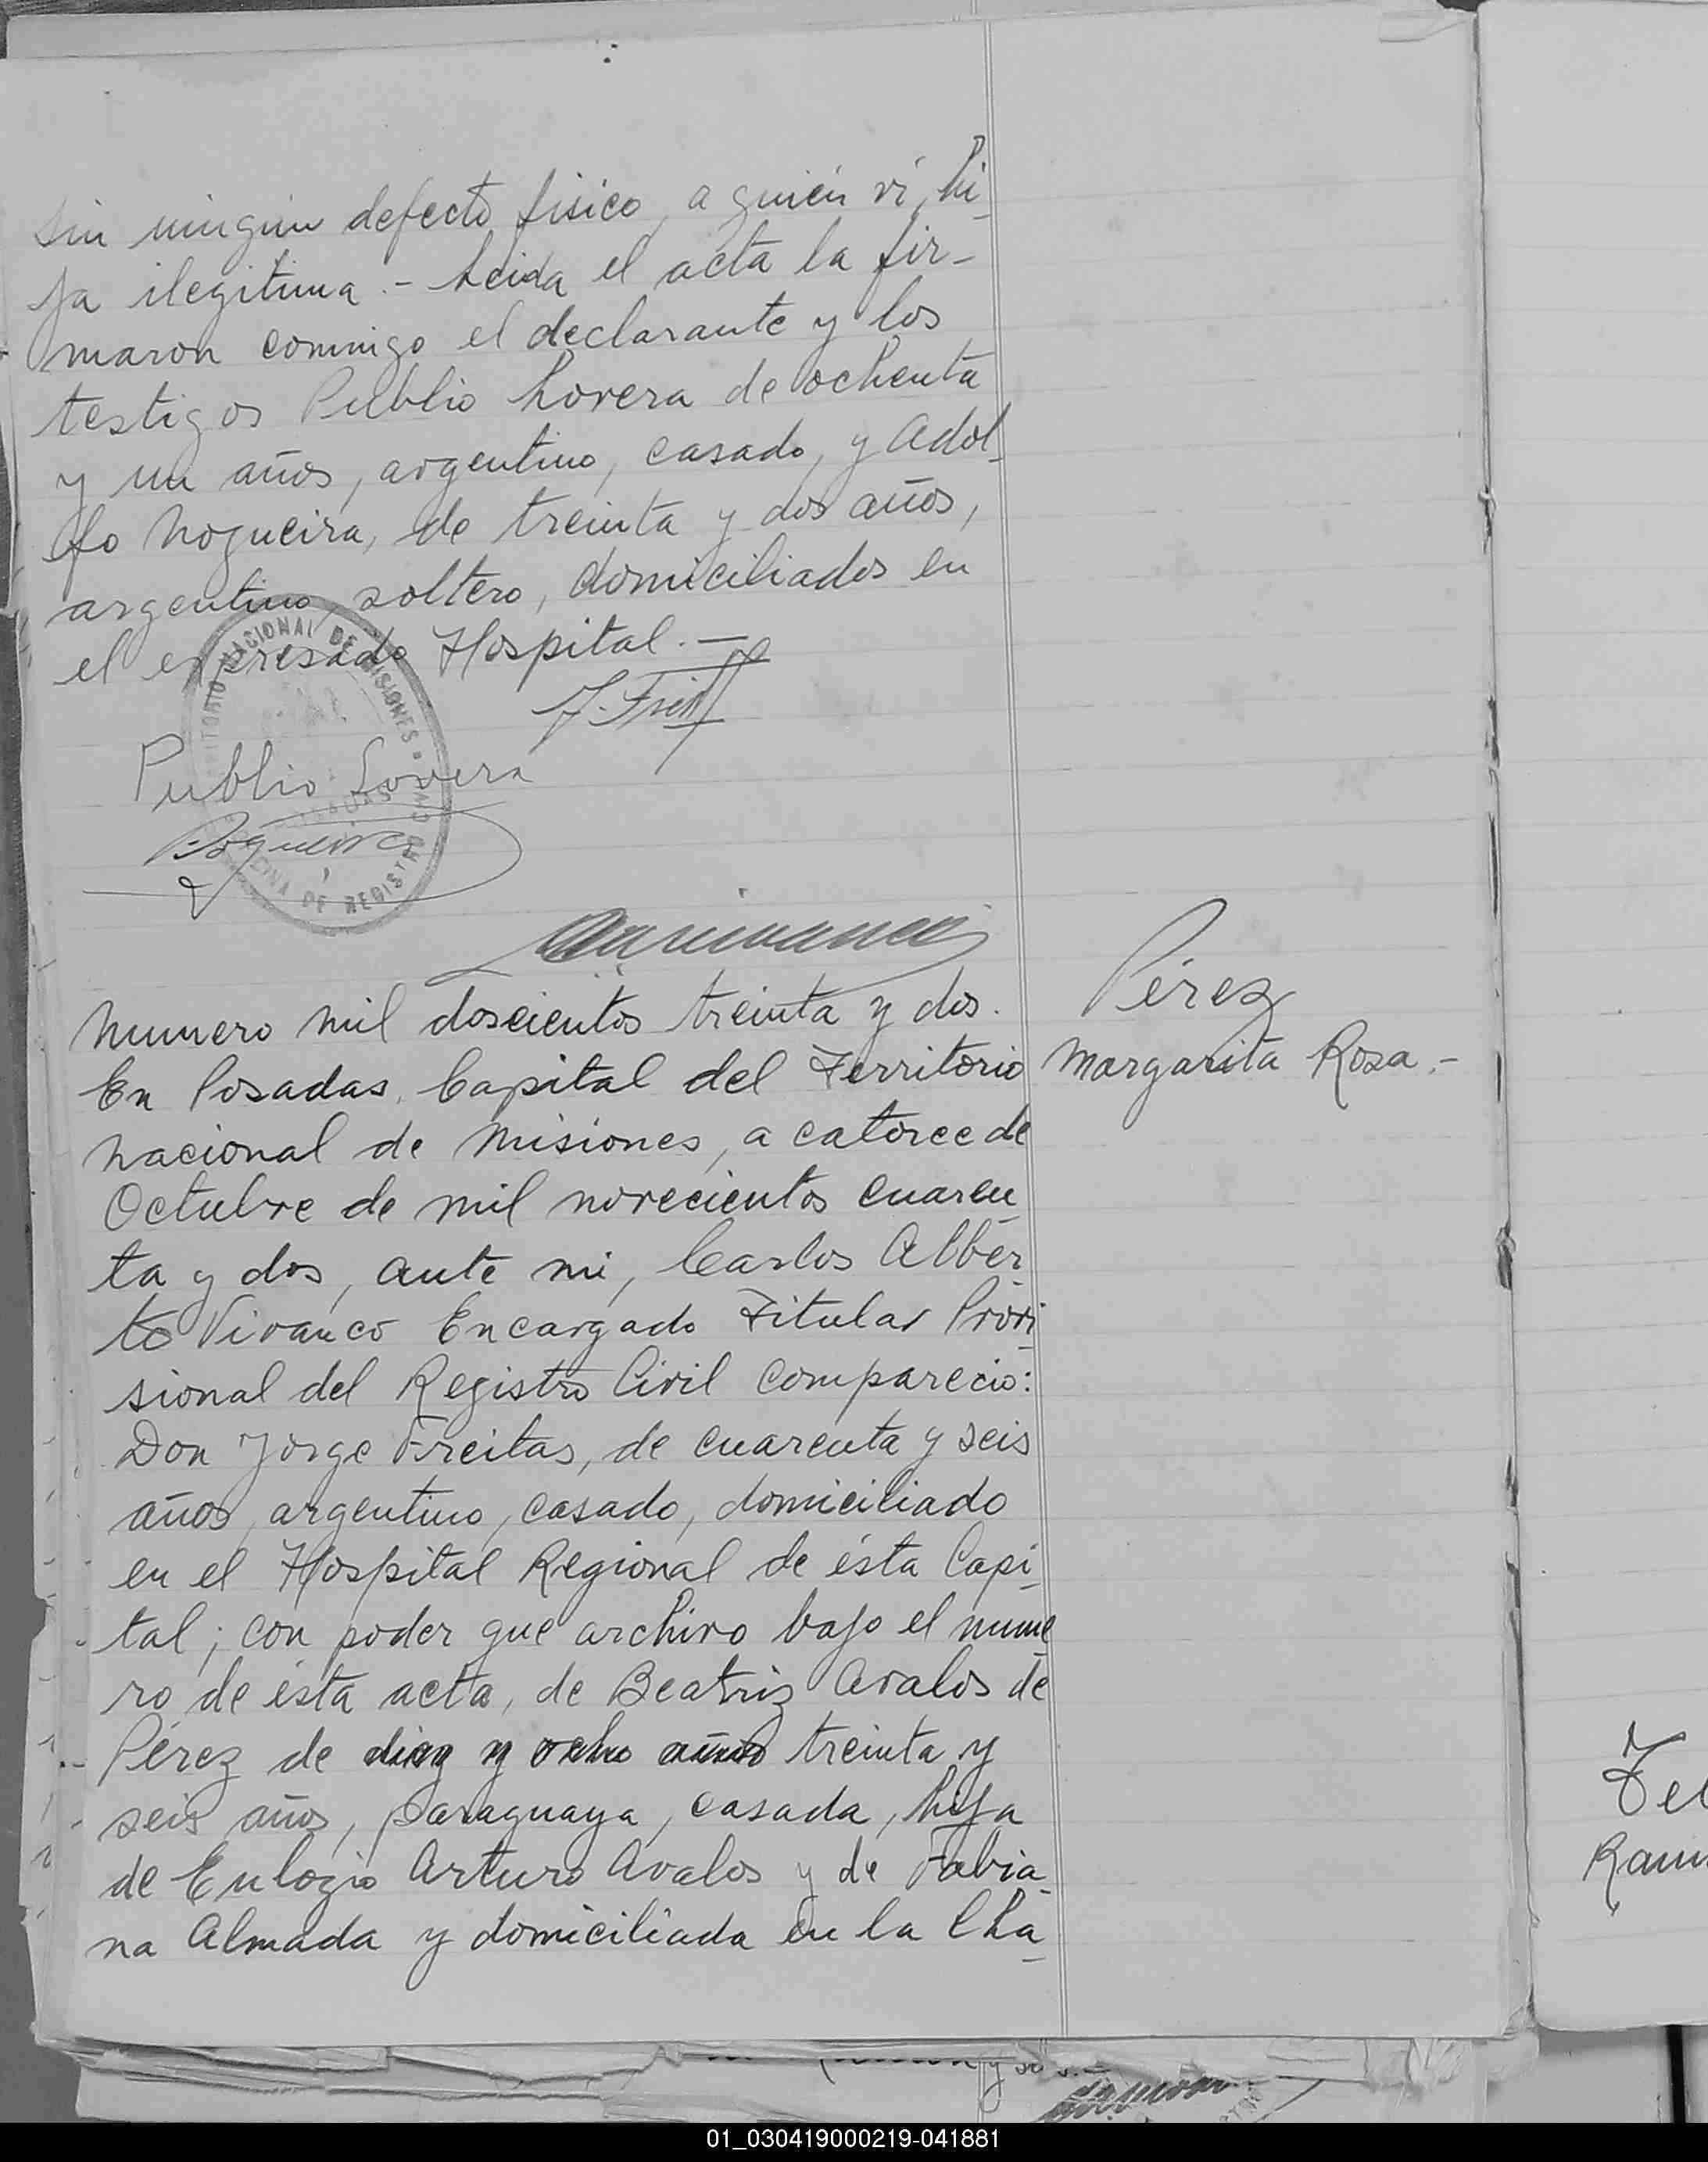 sin ningun defecto fisico, a quién ví, hi-
ja ilegitima.- Leida el acta la fir-
maron conmigo el declarante y los
testigos Publio Lovera de ochenta
y un años, argentino, casado, y Adol-
fo Nogueira, de treinta y dos años,
argentino, soltero, domiciliados en
el expresado Hospital.-
TERRITORIO NACIONAL DE MISIONES
OFICINA DE REGISTRO CIVIL
POSADAS
Publio Lovera
Nogueira
Pérez
Margarita Rosa.-
Numero mil doscientos treinta y dos.
En Posadas, Capital del Territorio
Nacional de Misiones, a catorce de
Octubre de mil novecientos cuaren-
ta y dos, ante mi, Carlos Alber-
to Vivanco Encargado Titular Provi-
sional del Registro Civil compareció:
Don Jorge Freitas, de cuarenta y seis
años, argentino, casado, domiciliado
en el Hospital Regional de ésta Capi-
tal; con poder que archivo bajo el nume-
ro de ésta acta, de Beatriz Avalos de
Pérez de diez y ocho años treinta y
seis años, paraguaya, casada, hija
de Eulogio Arturo Avalos y de Fabia-
na Almada y domiciliada en la Cha-
01_030419000219-041881